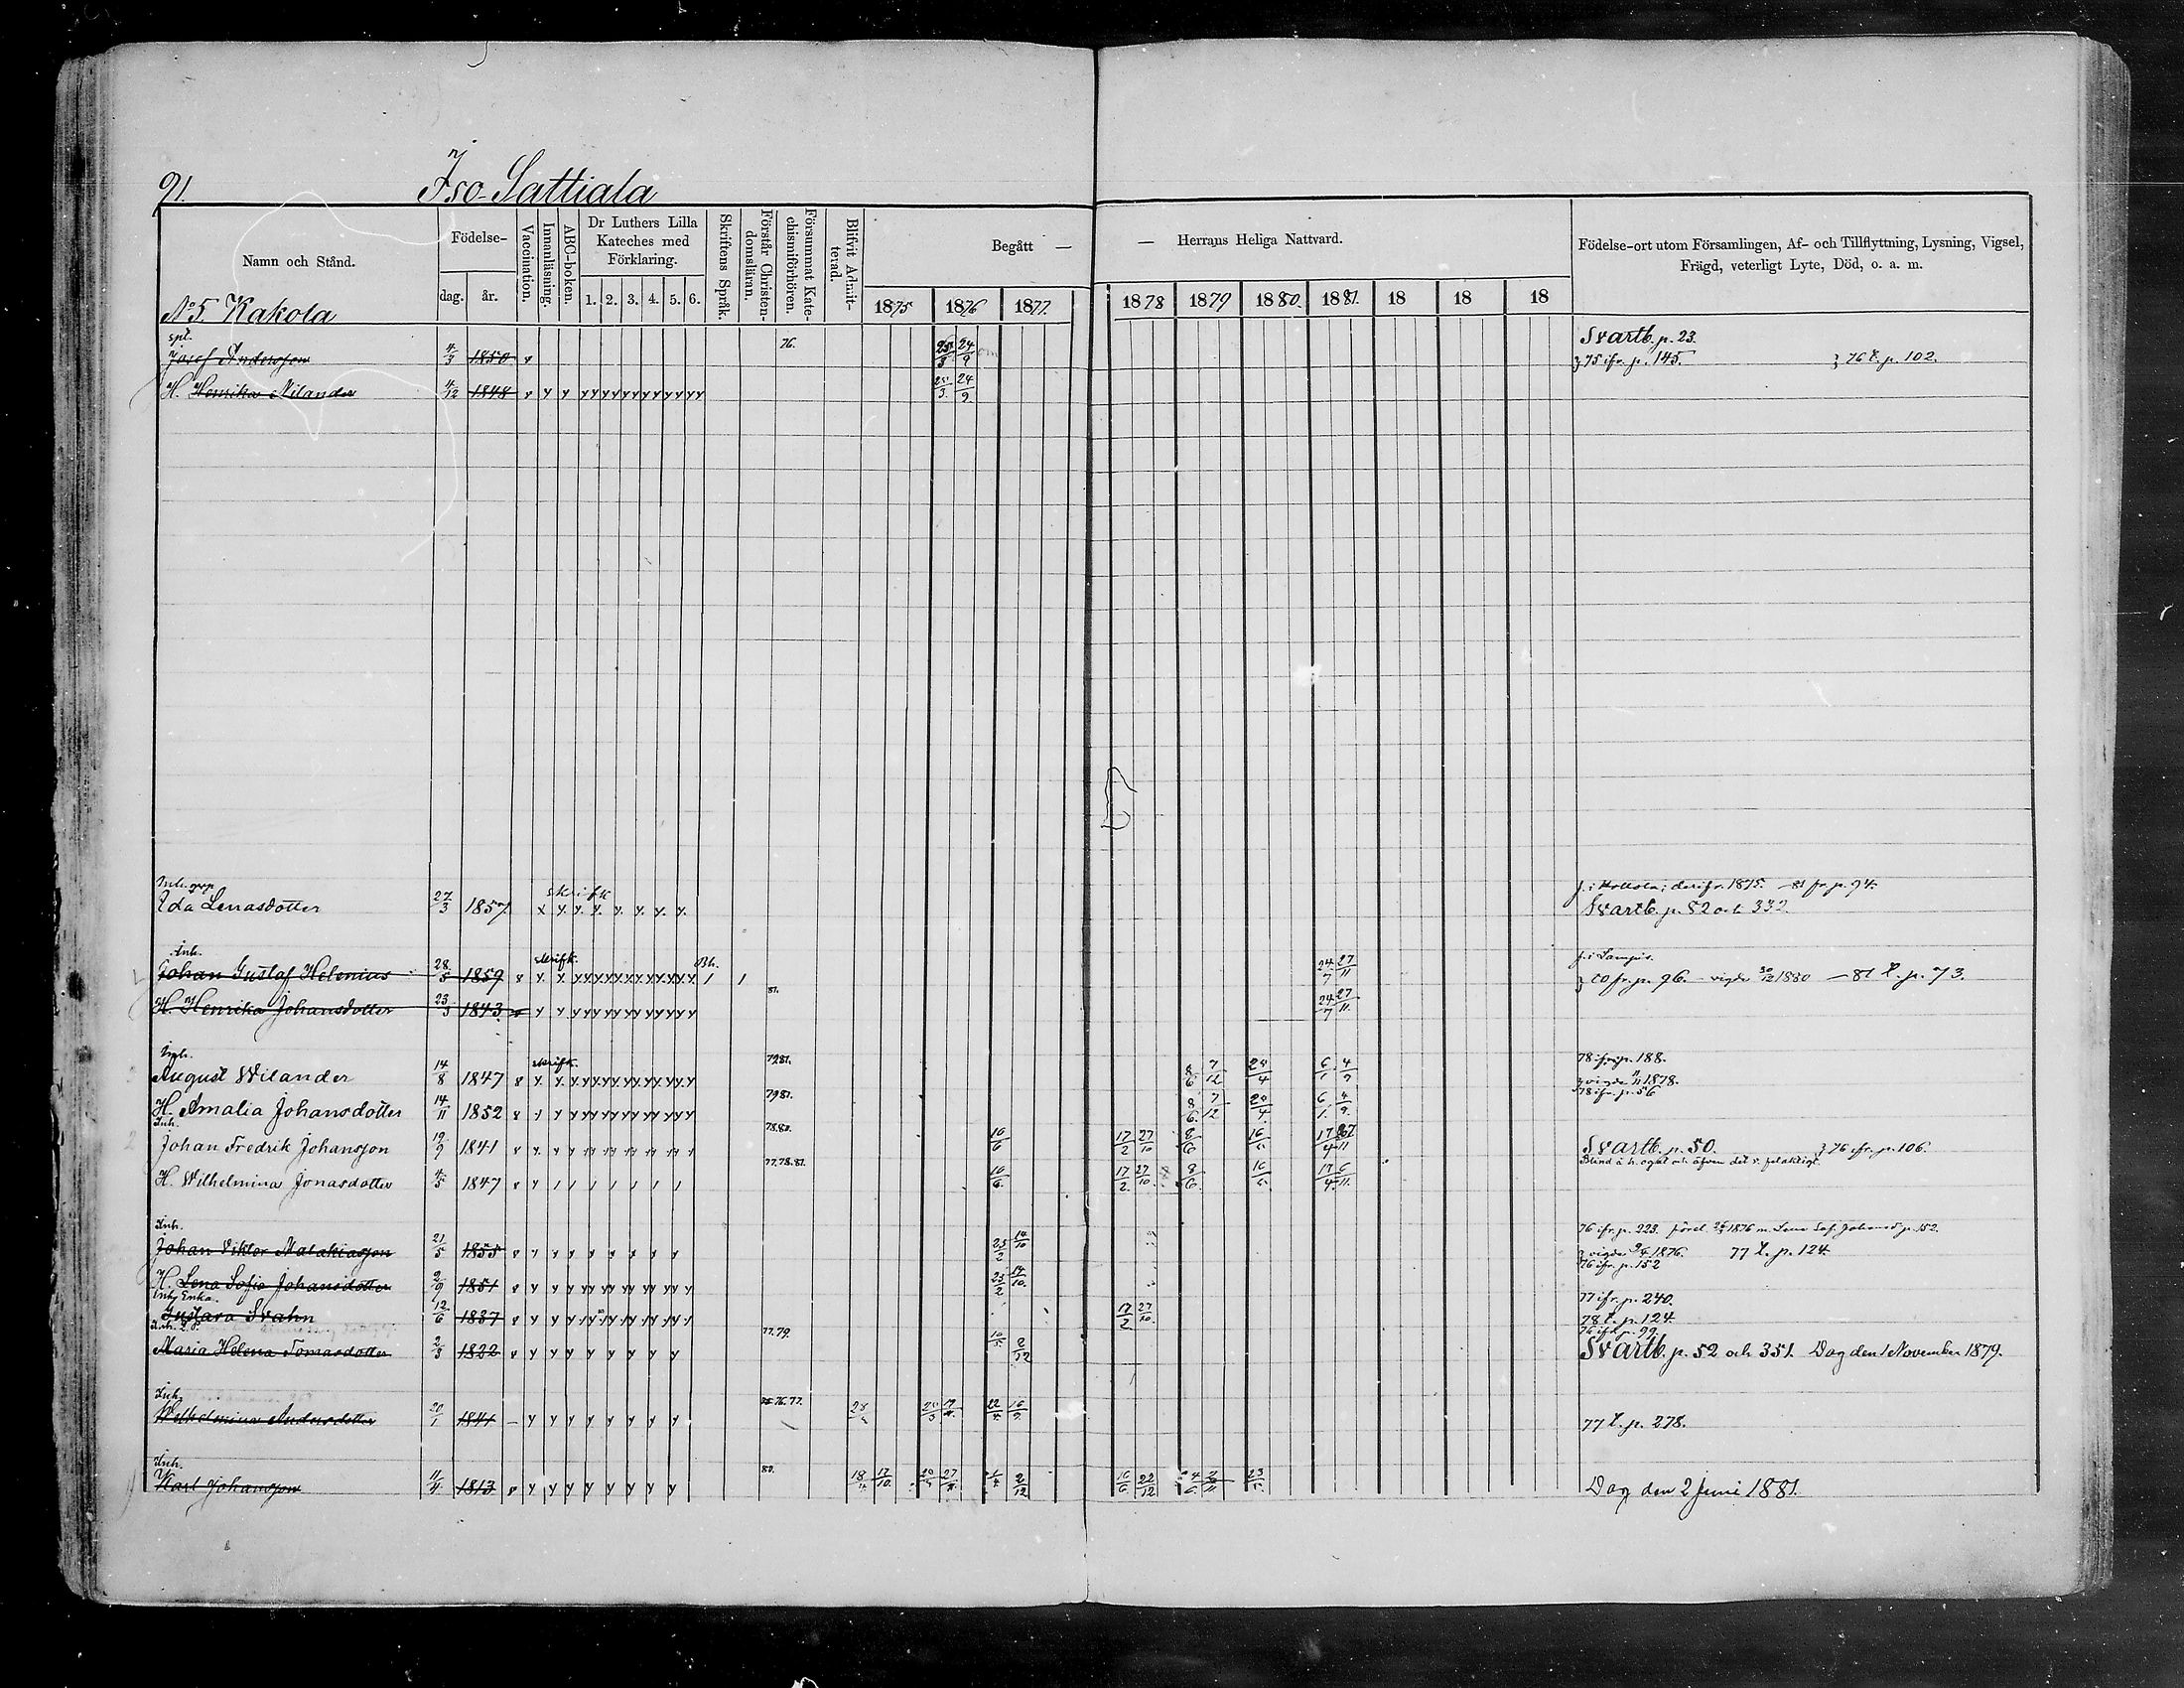 91.
Iso-Sattiala
Namn och Stånd.
Födelse-
dag. år.
Vaccination.
Innanläsning.
ABC-boken.
Dr Luthers Lilla
Kateches med
Förklaring.
1. 2. 3. 4. 5. 6.
Skriftens Språk.
Förstår Christen-
domsläran.
Försummat Kate-
chismiförhören.
Blifvit Admit-
terad.
Begått —
— Herrans Heliga Nattvard.
1875 1876 1877.
1878 1879 1880. 1881. 18 18 18
Födelse-ort utom Församlingen, Af- och Tillflyttning, Lysning, Vigsel,
Frägd, veterligt Lyte, Död, o. a. m.
No 5. Kakola
spl. 76. Svartb. p. 23.
Josef Andersson 4/3 1850 v 25/3 24/9 75 ifr. p. 145. 76 t. p. 102.
H. Henrika Nilander 4/12 1848 v y y yy yy yy yy yy yy 25/3. 24/9.
Inh.
Ida Lenasdotter 27/3 1857 skrifk x y. y. y. y. y. y. y. f. i Hollola; derifr. 1875. – 81 fr. p. 94.
Svartb. p. 52 och 332.
Inh. skrifk. f. i Lampis.
Johan Gustaf Helenius 28/5 1859 v 1 1 24/7 27/11 80 fr. p. 96. – vigde 30/12 1880 – 81 t. p. 73.
H. Henrika Johansdotter 23/3 1843 81. 24/7 27/11.
Inh. skrifk. 79 81. 78 ifr. p. 188.
August Wilander 14/8 1847 v 8/6 7/12 24/4 6/1 4/9 vigde 1878.
H. Amalia Johansdotter 14/11 1852 v 79 81. 8/6. 7/12 24/4. 6/1. 4/9. 78 ifr. p. 56
Inh. 78.80.
Johan Fredrik Johansson 19/9 1841 v 10/6 17/2 27/10 8/6 17/4 Svartb. p. 50. 76 ifr. p. 106.
77.78.81. Blind å h. ögat och äfven det v. felaktigt.
H. Wilhelmina Jonasdotter 4/5 1847 v y 10/6. 17/2. 27/10. 8/6. 17/4. 6/11.
Inh. 76 ifr. p. 223. 1876 m. Lena Sof. Johansd. p. 152.
Johan Viktor Malakiasson 21/5 1855 v y y y y y y y y 25/2 14/10 vigde 1876. 77 t. p. 124
H. Lena Sofia Johansdotter 2/9 1851 v 25/2 14/10. 76 ifr. p. 152
Inh. Enka. 77 ifr. p. 240.
Gustava Svahn 12/6 1837 v 17/2 27/10. 78 t. p. 124.
77.79. 76 ifr. p. 99.
Maria Helena Tomasdotter 2/3 1822 v y y y y y y y y 10/5. 2/12 Svartb. p. 52 och 351. Dog den 1 November 1879.
Inh. 76.77.
Wilhelmina Andersdotter 20/1 1841 – y y y y y y y y 77 t. p. 278.
Inh. 80.
Karl Johansson 11/4 1813 v y y y y y y y y 17/10. 2/12 16/6 22/12 Dog den 2 Juni 1881.